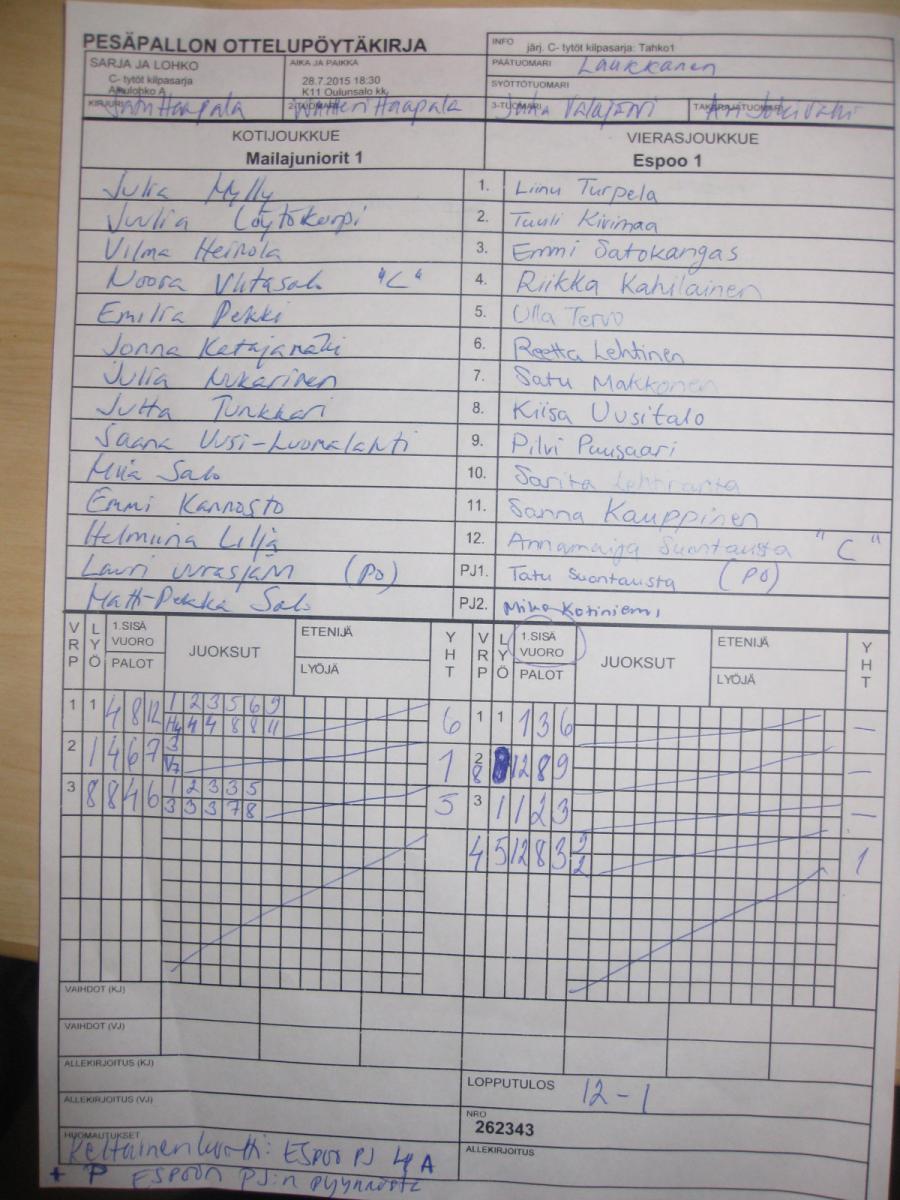 PESÄPALLON OTTELUPÖYTÄKIRJA
INFO järj. C- tytöt kilpasarja: Tahko1
SARJA JA LOHKO
C- tytöt kilpasarja
Alkulohko A
AIKA JA PAIKKA
28.7.2015 18:30
K11 Oulunsalo kk,
PÄÄTUOMARI Laukkanen
SYÖTTÖTUOMARI
KIRJURI Haapala
2-TUOMARI Haapala
3-TUOMARI Juha
TAKARAJATUOMARI
KOTIJOUKKUE VIERASJOUKKUE
Mailajuniorit 1 Espoo 1
Julia Mylly 1. Linu Turpela
Juulia Löytökorpi 2. Tuuli Kivimaa
Vilma Heinola 3. Emmi Satokangas
Noora Ylitasalo "C" 4. Riikka Kahilainen
Emilia Pekki 5. Ulla Tervo
Jonna Katajamäki 6. Reetta Lehtinen
Julia Nukarinen 7. Satu Makkonen
Jutta Tunkkari 8. Kiisa Uusitalo
Saana Uusi-Luomalahti 9. Pilvi Puusaari
Miia Salo 10. Sarita Lehtiranta
Emmi Kannosto 11. Sanna Kauppinen
Helmiina Lilja 12. Annamaija Suontausta "C"
Lauri (PO) PJ1. Tatu Suontausta (PO)
Matti-Pekka Salo PJ2. Mika Kotiniemi
VRP LYÖ 1.SISÄ VUORO PALOT JUOKSUT ETENIJÄ LYÖJÄ YHT VRP LYÖ 1.SISÄ VUORO PALOT JUOKSUT ETENIJÄ LYÖJÄ YHT
1 1 4 8 12 1 2 3 5 6 9 6 1 1 1 3 6 —
4 4 8 8 11
2 1 4 6 7 3 1 2 8 8 12 8 9 —
V7
3 8 8 4 6 1 2 3 3 5 5 3 1 1 2 3 —
3 3 3 7 8
4 5 12 8 3 2 1
2
VAIHDOT (KJ)
VAIHDOT (VJ)
ALLEKIRJOITUS (KJ)
LOPPUTULOS 12-1
ALLEKIRJOITUS (VJ)
NRO
262343
HUOMAUTUKSET
ALLEKIRJOITUS
Keltainen kortti: ESPOO PJ
+ P ESPOON PJ:n pyynnöstä